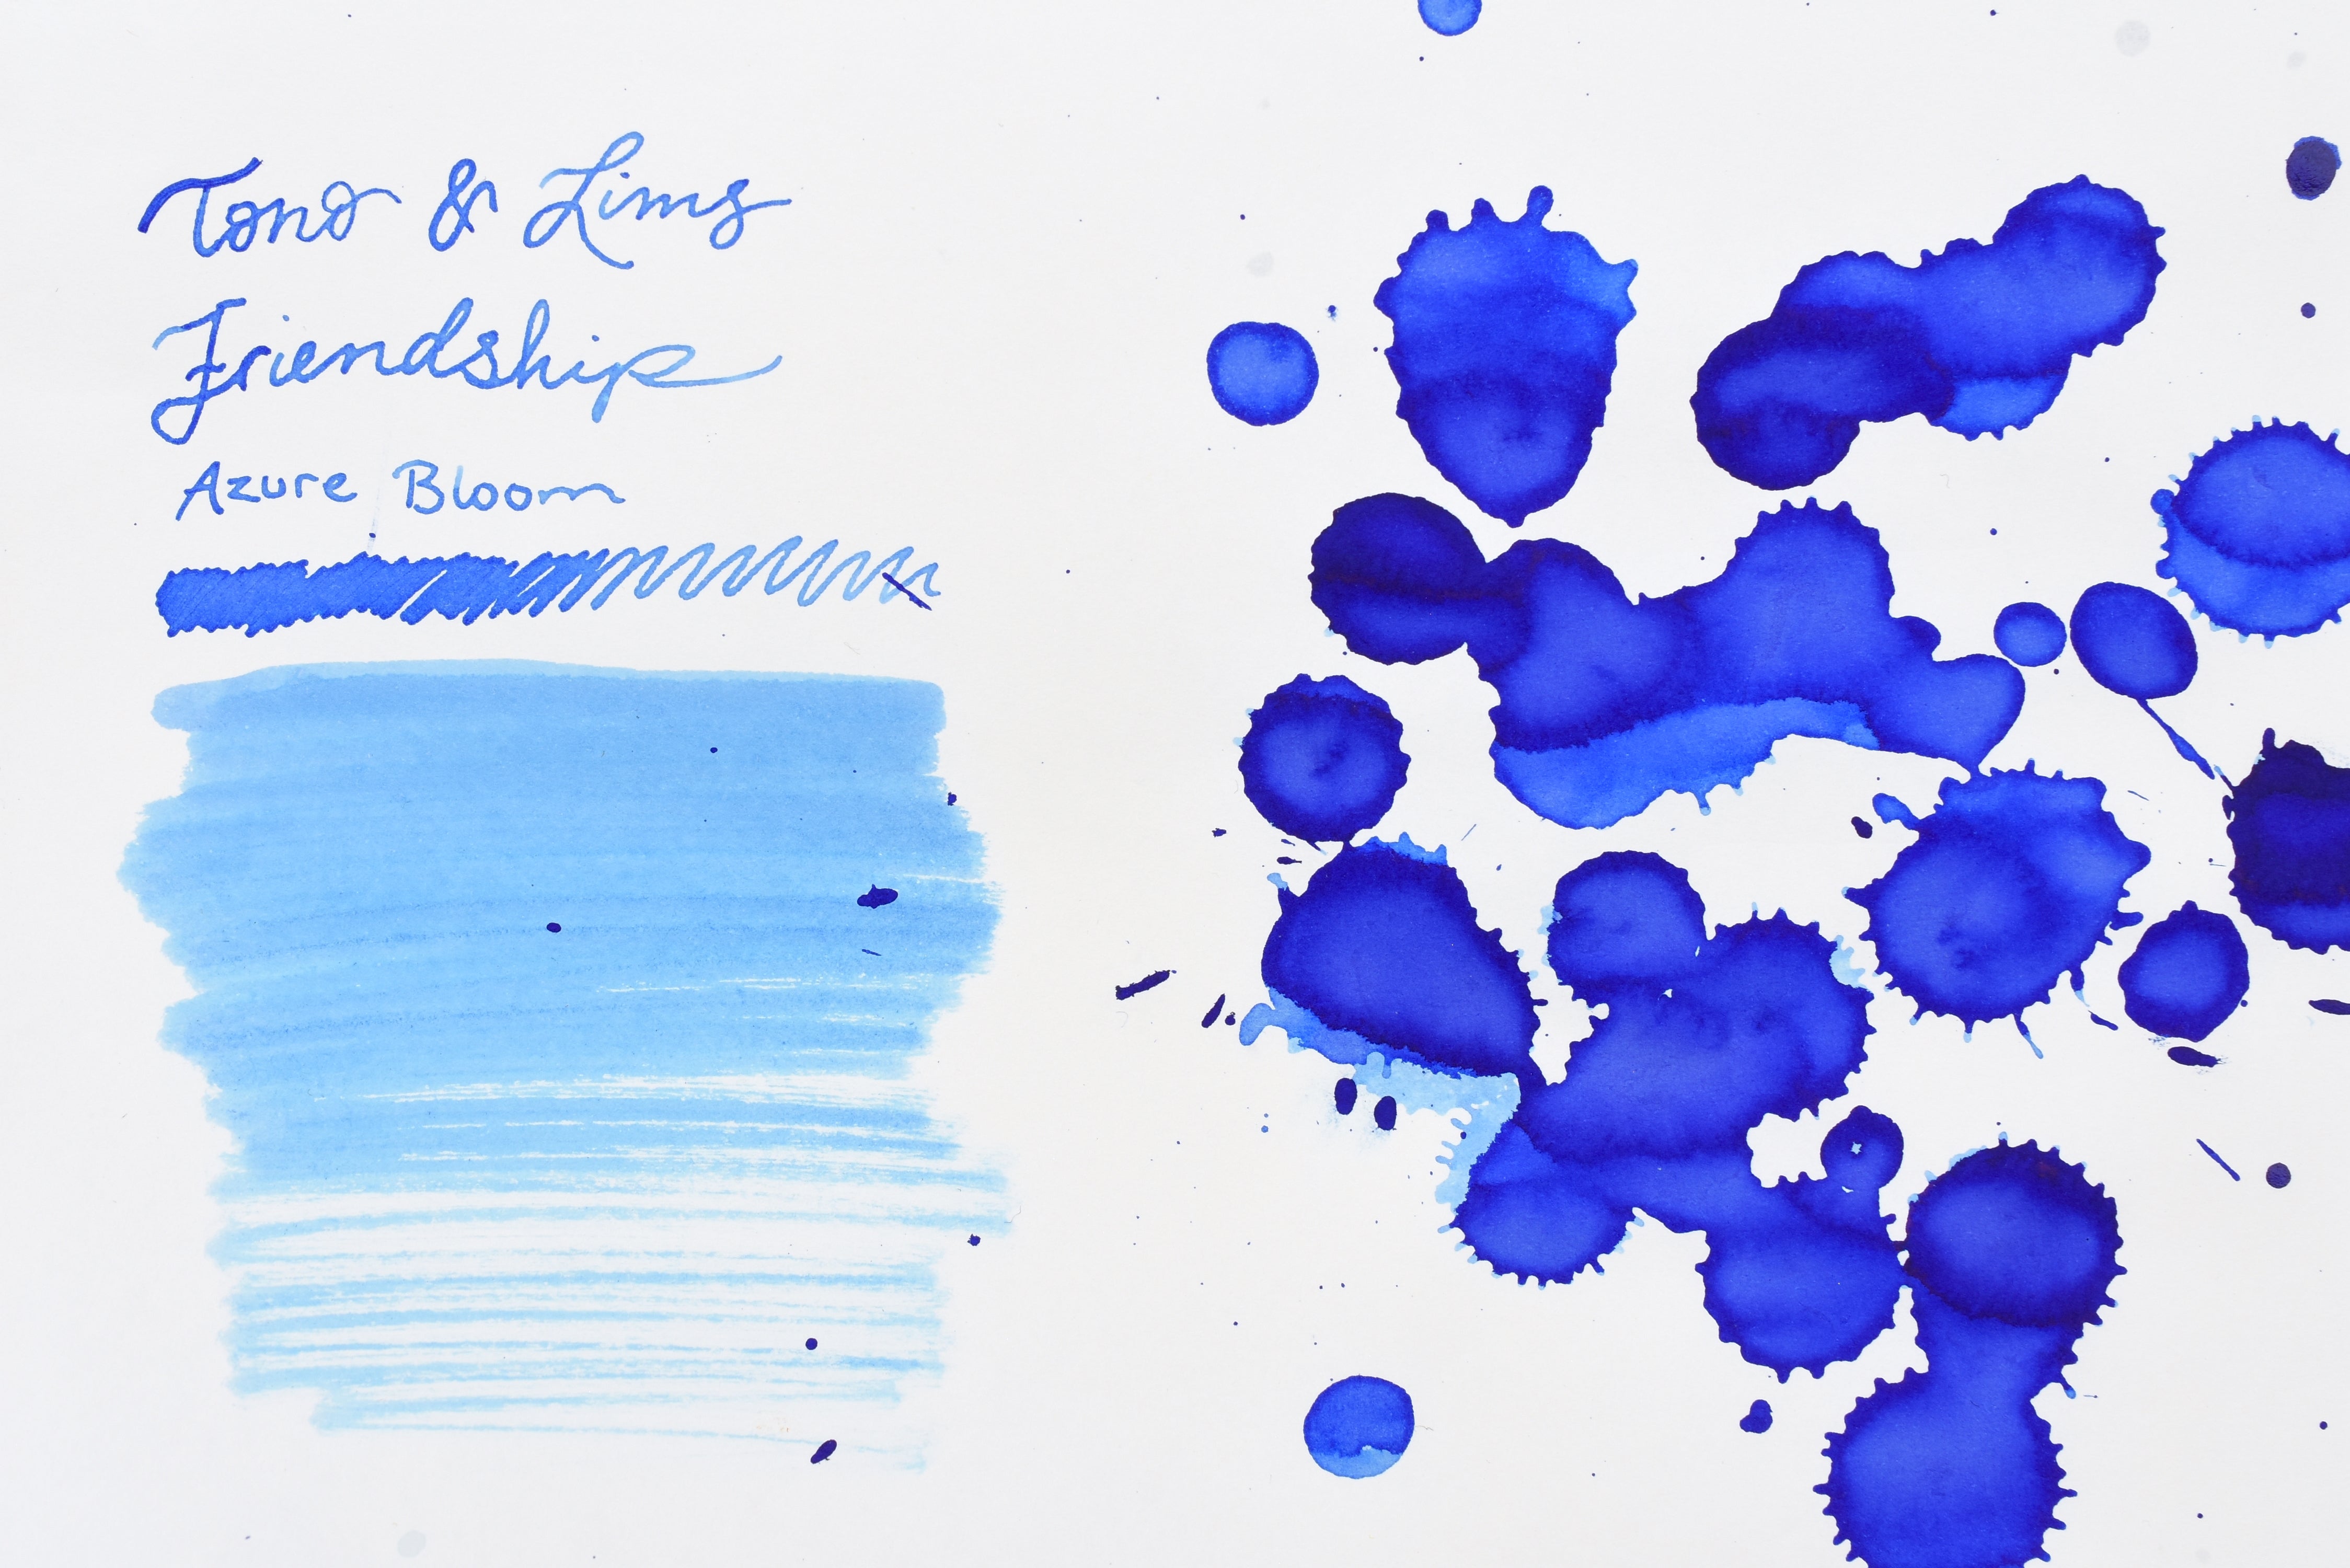 Tono & Lims
Friendship
Azure Bloom